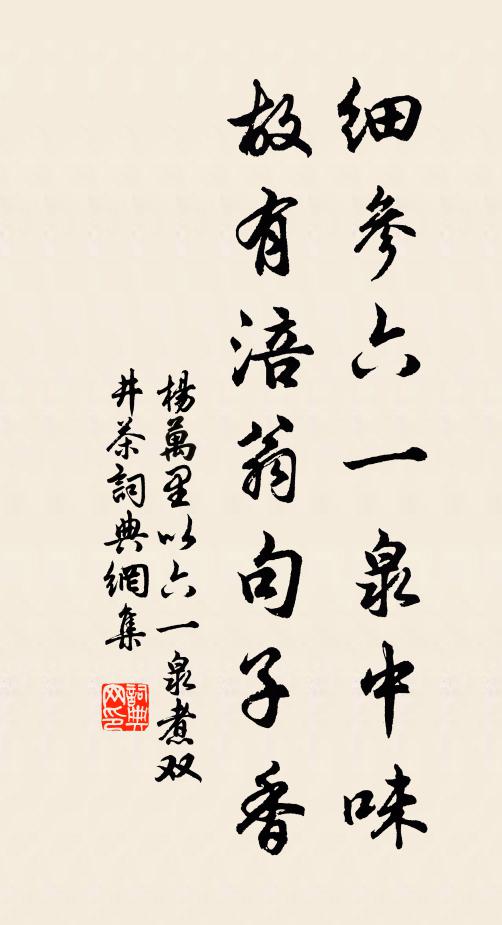 细参六一泉中味
故有涪翁句子香
楊萬里以六一泉煮双
井茶詞典網集
詞典
网印